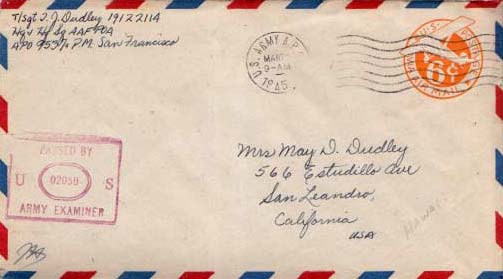 T/Sgt T. J. Dudley 19122119
Hq & Hq Sq AAF POA
APO 953 % P.M. San Francisco
U.S. ARMY A.P.
MAR
9-AM
1945
U.S. POSTAGE
6¢
VIA AIR MAIL
Mrs May D. Dudley
566 Estudillo Ave
San Leandro,
California
USA
Hawaii
PASSED BY
U 02058 S
ARMY EXAMINER